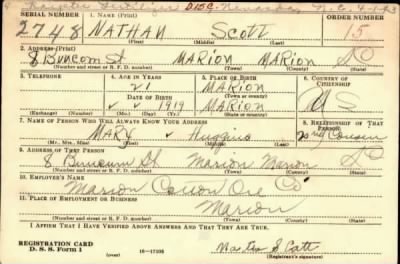 DISC.
SERIAL NUMBER 1. NAME (Print) ORDER NUMBER
2748 NATHAN SCOTT 15
(First) (Middle) (Last)
2. ADDRESS (Print)
8 Buncom St MARION MARION SC
(Number and street or R. F. D. number) (Town) (County) (State)
3. TELEPHONE 4. AGE IN YEARS 5. PLACE OF BIRTH 6. COUNTRY OF CITIZENSHIP
21 MARION
DATE OF BIRTH (Town or county)
1919 MARION U S
(Exchange) (Number) (Mo.) (Day) (Yr.) (State or country)
7. NAME OF PERSON WHO WILL ALWAYS KNOW YOUR ADDRESS 8. RELATIONSHIP OF THAT PERSON
MARY Huggins Cousin
(Mr., Mrs., Miss) (First) (Middle) (Last)
9. ADDRESS OF THAT PERSON
8 Buncum St Marion Marion SC
(Number and street or R. F. D. number) (Town) (County) (State)
10. EMPLOYER'S NAME
Marion Co
11. PLACE OF EMPLOYMENT OR BUSINESS
Marion
(Number and street or R. F. D. number) (Town) (County) (State)
I AFFIRM THAT I HAVE VERIFIED ABOVE ANSWERS AND THAT THEY ARE TRUE.
REGISTRATION CARD
D. S. S. Form 1 16-17105
(Registrant's signature)